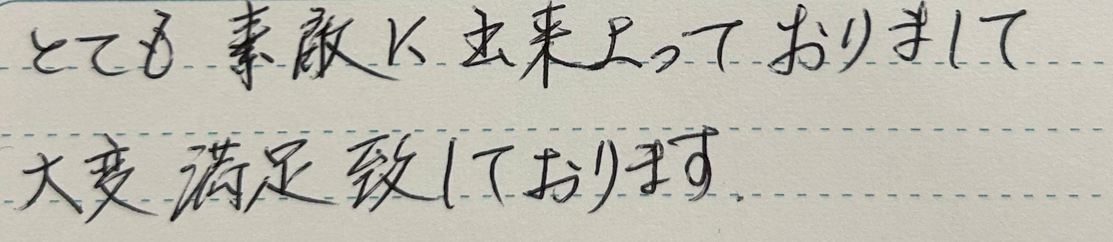 とても素敵に出来上っておりまして
大変満足致しております.